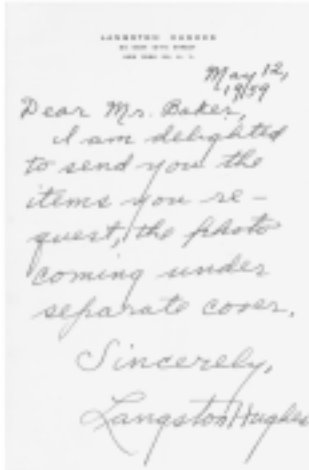 LANGSTON HUGHES
NEW YORK
May 12,
1959
Dear Mr. Baker,
I am delighted
to send you the
items you re-
quest, the photo
coming under
separate cover.
Sincerely,
Langston Hughes